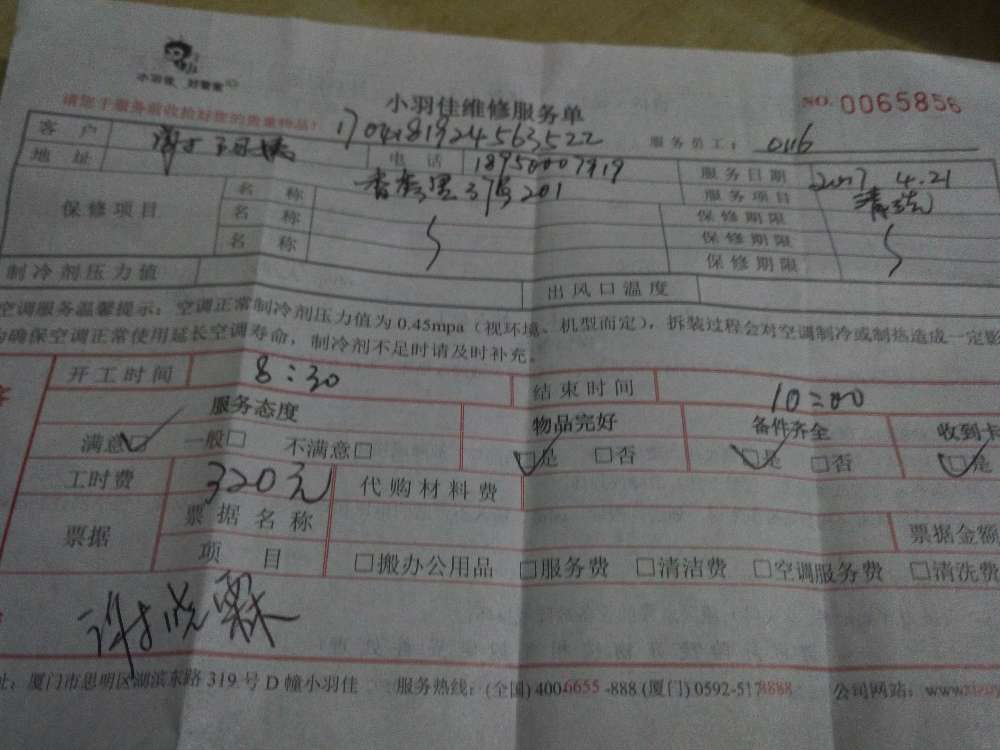 小羽佳 好管家
小羽佳维修服务单
NO. 0065856
请您于服务前收拾好您的贵重物品！
1704181924563522
服务员工： 0116
客户
电话 18950007919
服务日期 2017 4.21
地址 37号201
服务项目 清洗
保修项目 名称 保修期限
名称 保修期限
名称 保修期限
制冷剂压力值 出风口温度
空调服务温馨提示：空调正常制冷剂压力值为0.45mpa（视环境、机型而定），拆装过程会对空调制冷或制热造成一定影
确保空调正常使用延长空调寿命，制冷剂不足时请及时补充。
开工时间 8:30 结束时间 10:00
服务态度 物品完好 备件齐全 收到卡
满意☑ 一般□ 不满意□ ☑是 □否 ☑是 □否 ☑是
工时费 320元 代购材料费
票据 票据名称 票据金额
项目 □搬办公用品 □服务费 □清洁费 □空调服务费 □清洗费
址：厦门市思明区湖滨东路319号D幢小羽佳 服务热线：(全国) 4006655-888 (厦门) 0592-5178888 公司网站：www.